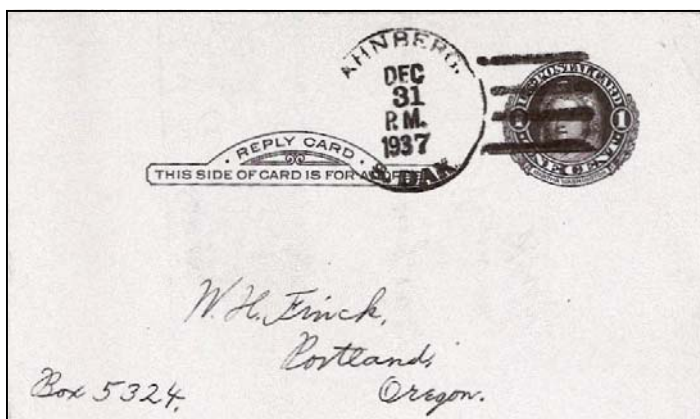 AHNBERG.
DEC
31
P.M.
1937
S. DAK.
U.S. POSTAL CARD
1 1
ONE CENT
· REPLY CARD ·
THIS SIDE OF CARD IS FOR ADDRESS
W. H. Finck,
Portland,
Box 5324.
Oregon.